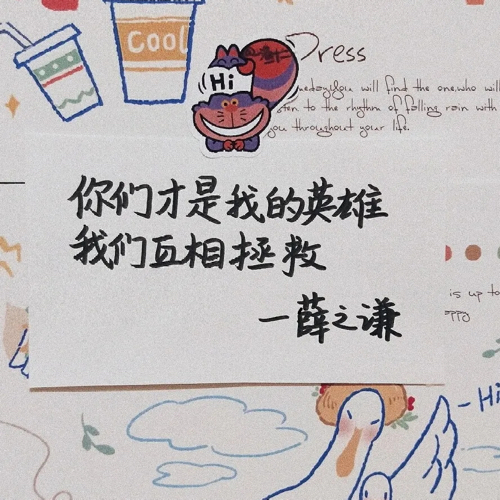 Cool
Hi
Dress
you will find the one, who will
to the rhythm of falling rain with
you throughout your life.
你们才是我的英雄
我们互相拯救
—薛之谦
is up to
appy
Hi